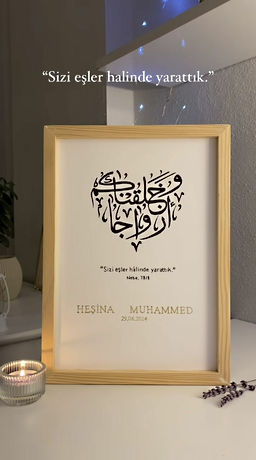 “Sizi eşler halinde yarattık.”
وخلقناكم
أزواجا
“Sizi eşler hâlinde yarattık.”
Nebe, 78/8
HEŞİNA MUHAMMED
29.06.2024